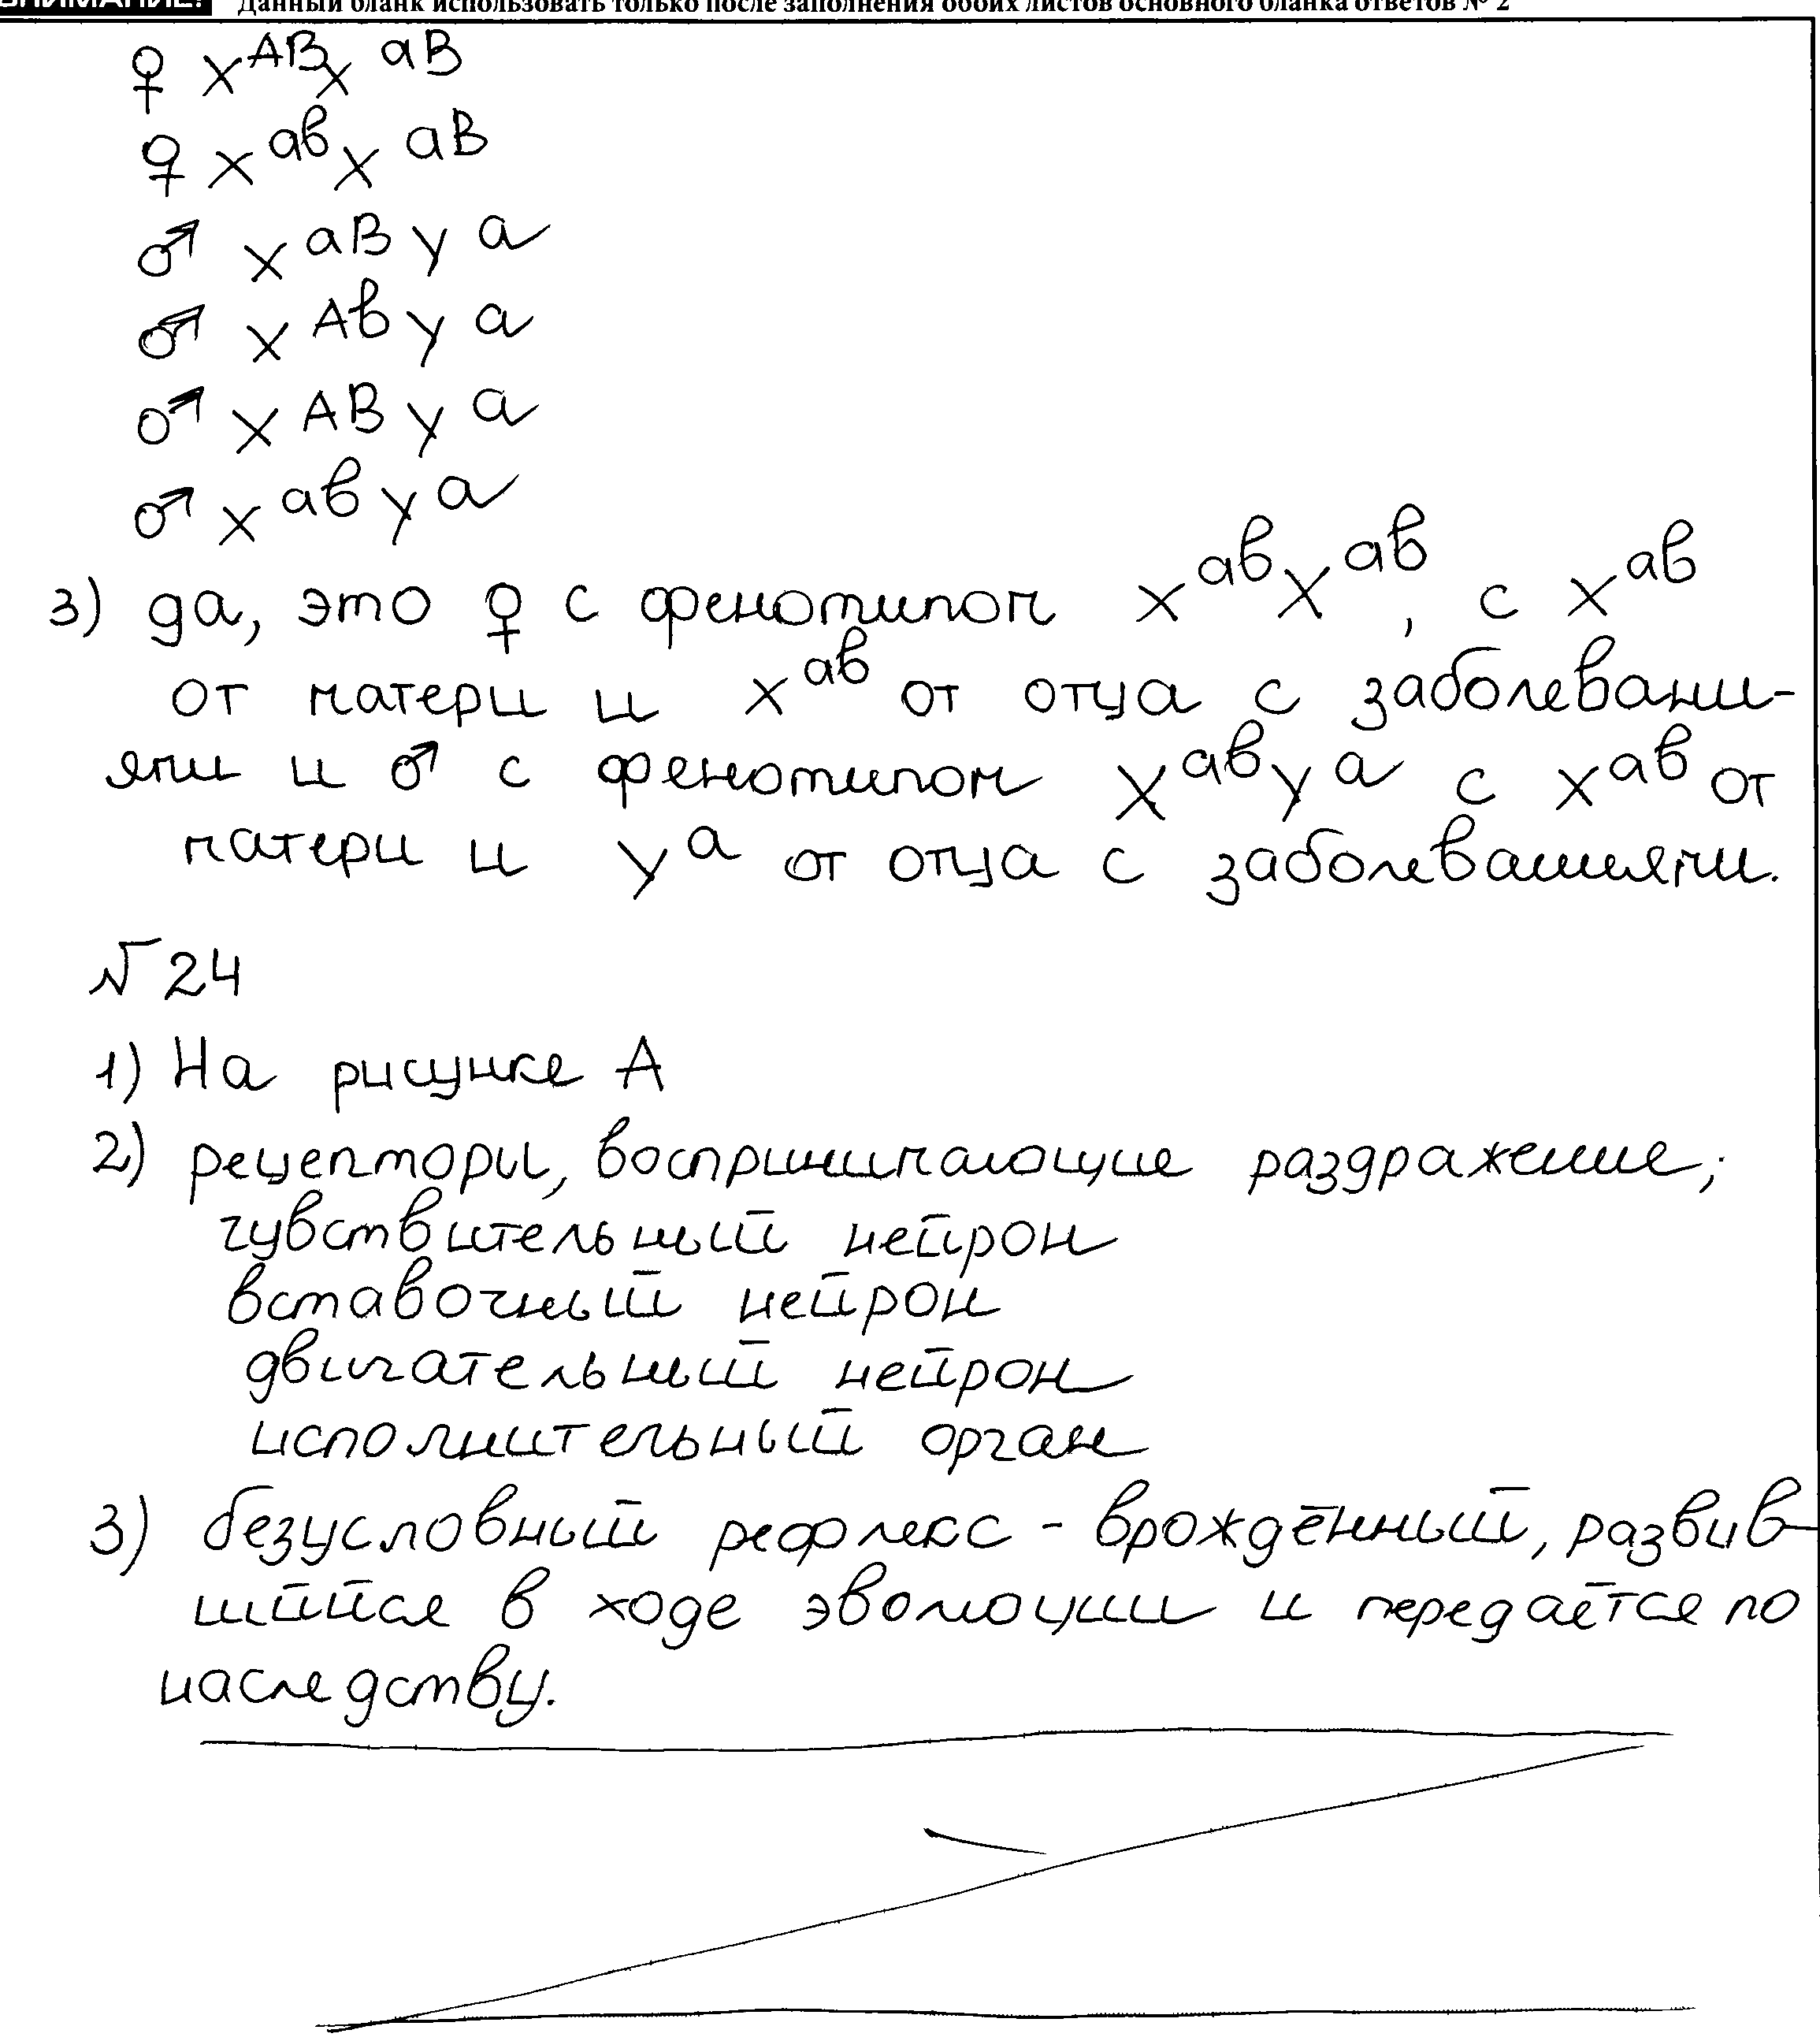 ВНИМАНИЕ! Данный бланк использовать только после заполнения обоих листов основного бланка ответов № 2
♀ X^AB X^aB
♀ X^ав X^aB
♂ X^aB Y^a
♂ X^Aв Y^a
♂ X^AB Y^a
♂ X^ав Y^a
3) да, это ♀ с фенотипом X^ав X^ав, с X^ав
от матери и X^ав от отца с заболевани-
ями и ♂ с фенотипом X^ав Y^a с X^ав от
матери и Y^a от отца с заболеваниями.
№24
1) На рисунке А
2) рецепторы, воспринимающие раздражение;
чувствительный нейрон
вставочный нейрон
двигательный нейрон
исполнительный орган
3) безусловный рефлекс - врождённый, развив-
шийся в ходе эволюции и передаётся по
наследству.